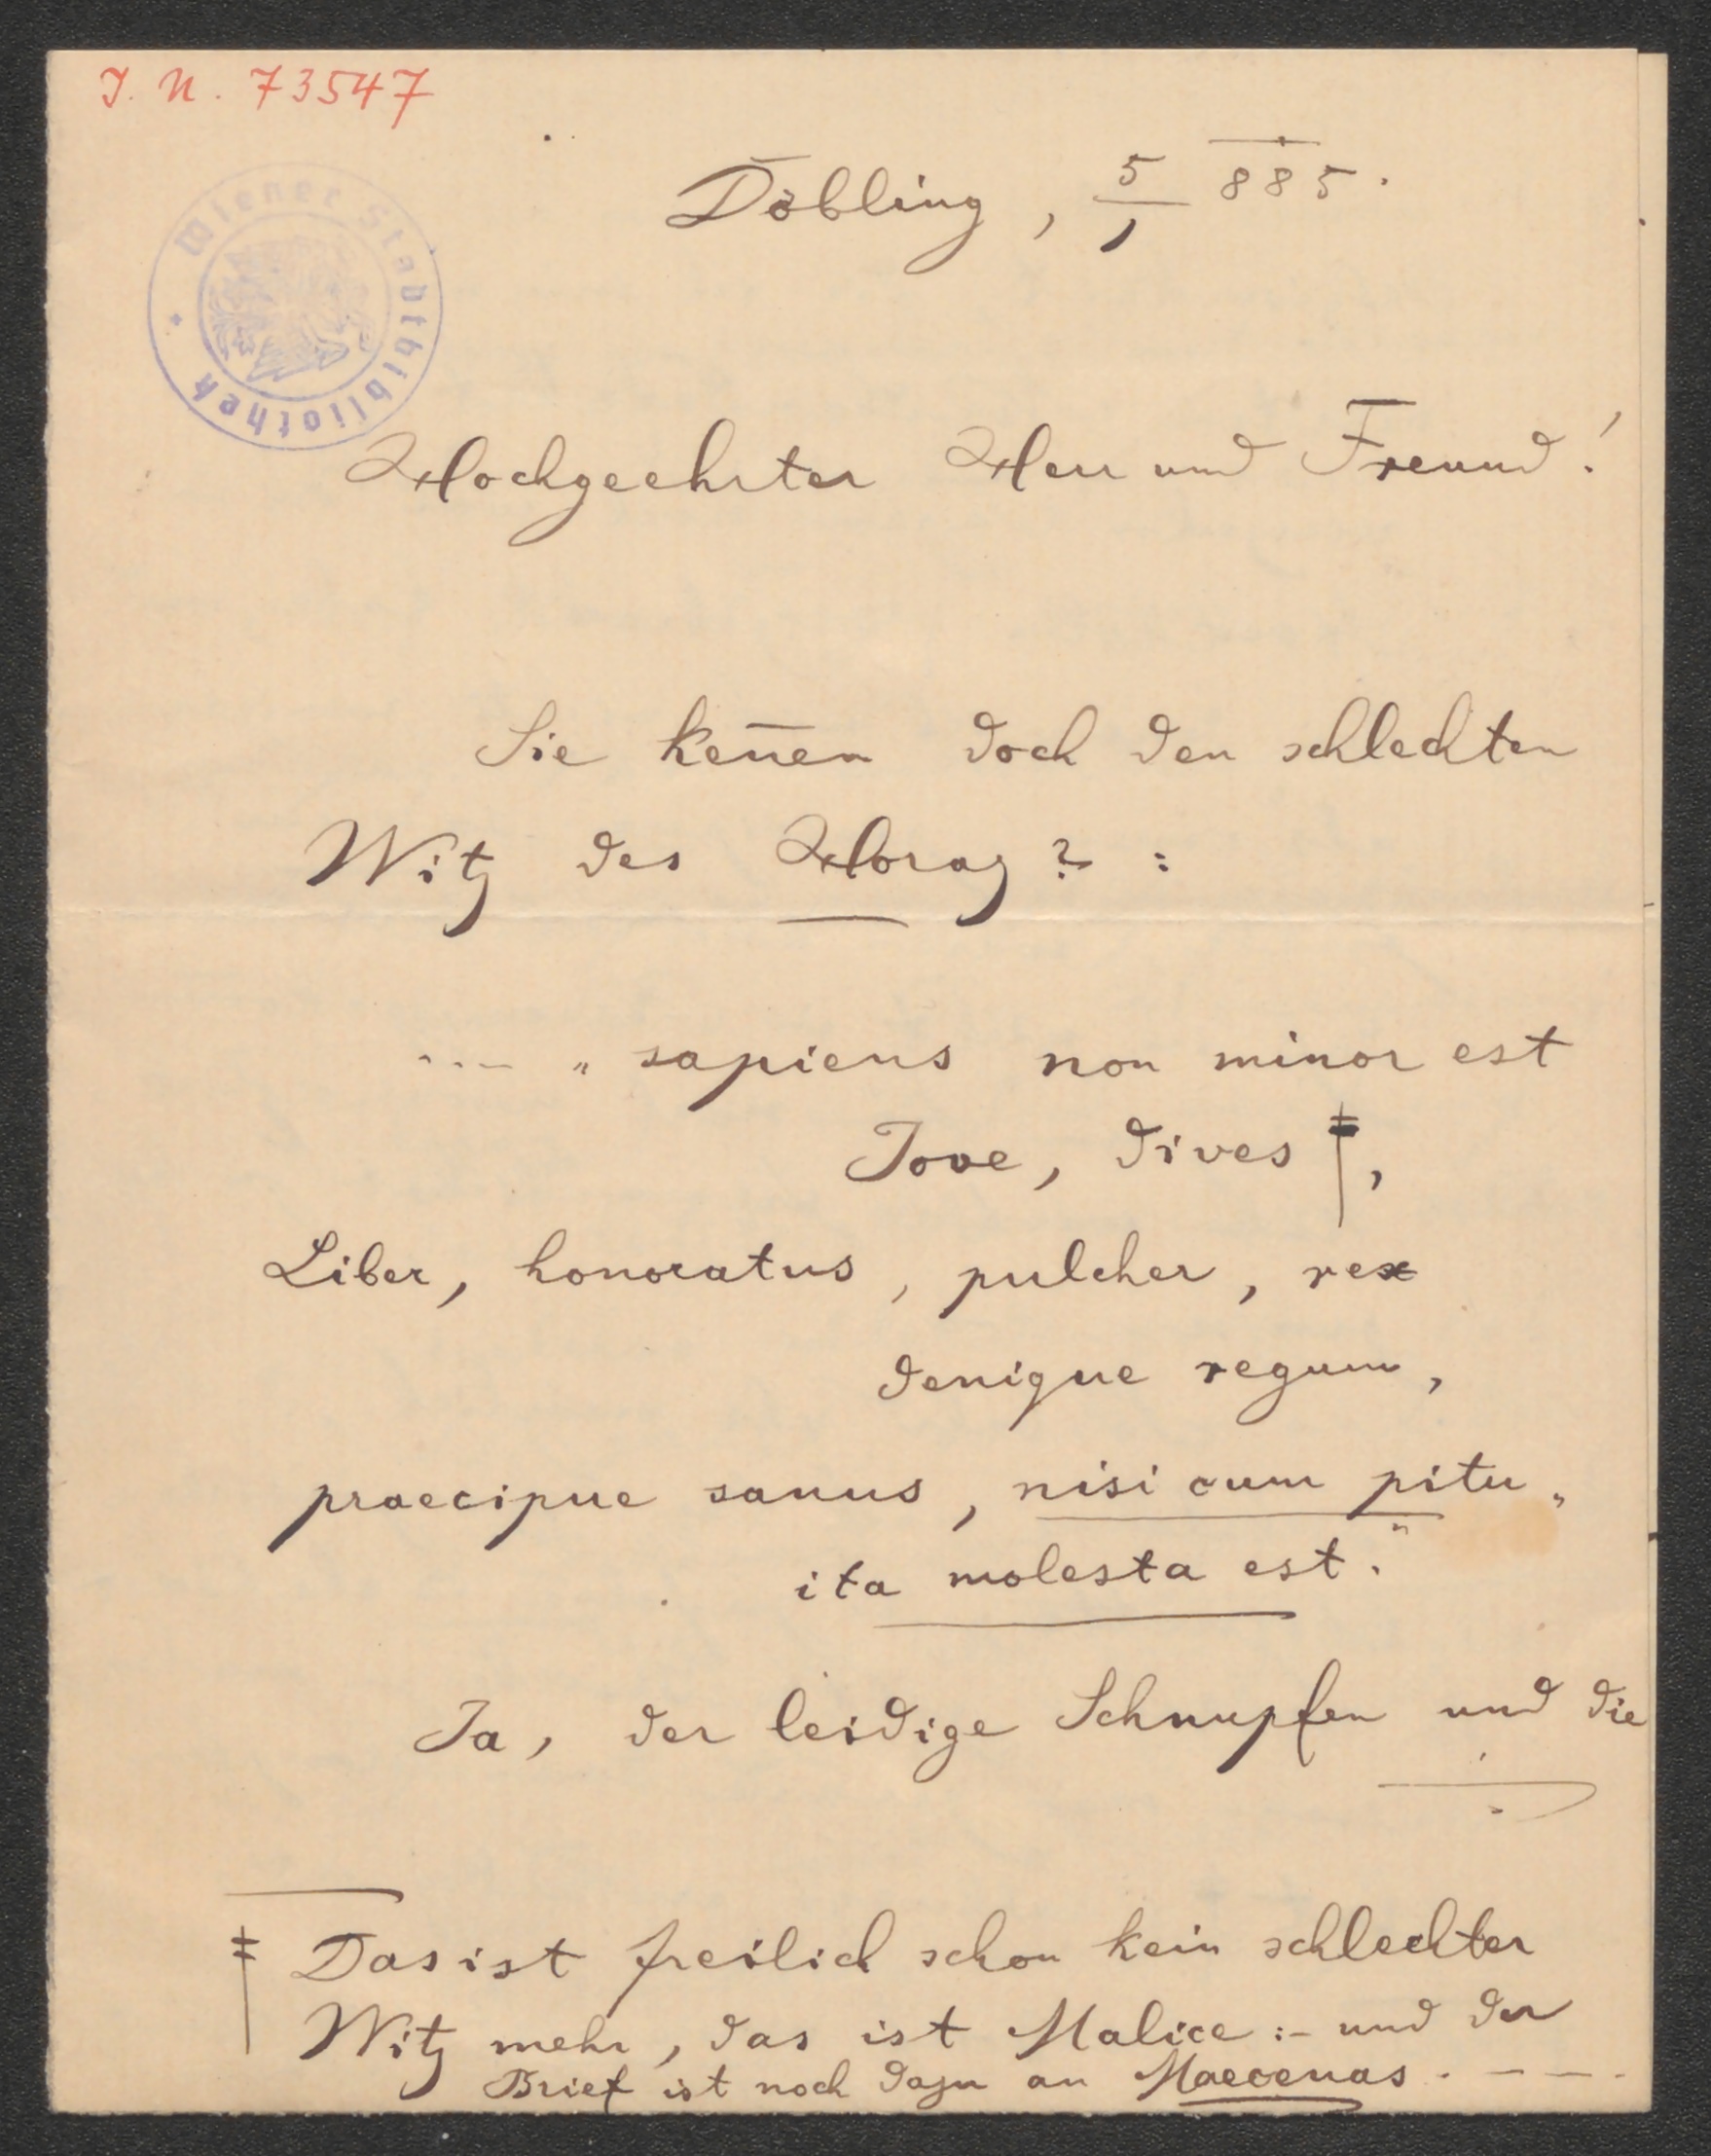 J. N. 73547
Wiener Stadtbibliothek
Döbling, 5/1 885.
Hochgeehrter Herr und Freund!
Sie keñen doch den schlechten
Witz des Horaz? :
.... „sapiens non minor est
Jove, dives ‡,
Liber, honoratus, pulcher, rex
denique regum,
praecipue sanus, nisi cum pitu„
ita molesta est."
Ja, der leidige Schnupfen und die
‡ Das ist freilich schon kein schlechter
Witz mehr, das ist Malice :- und der
Brief ist noch dazu an Maecenas. – – –.